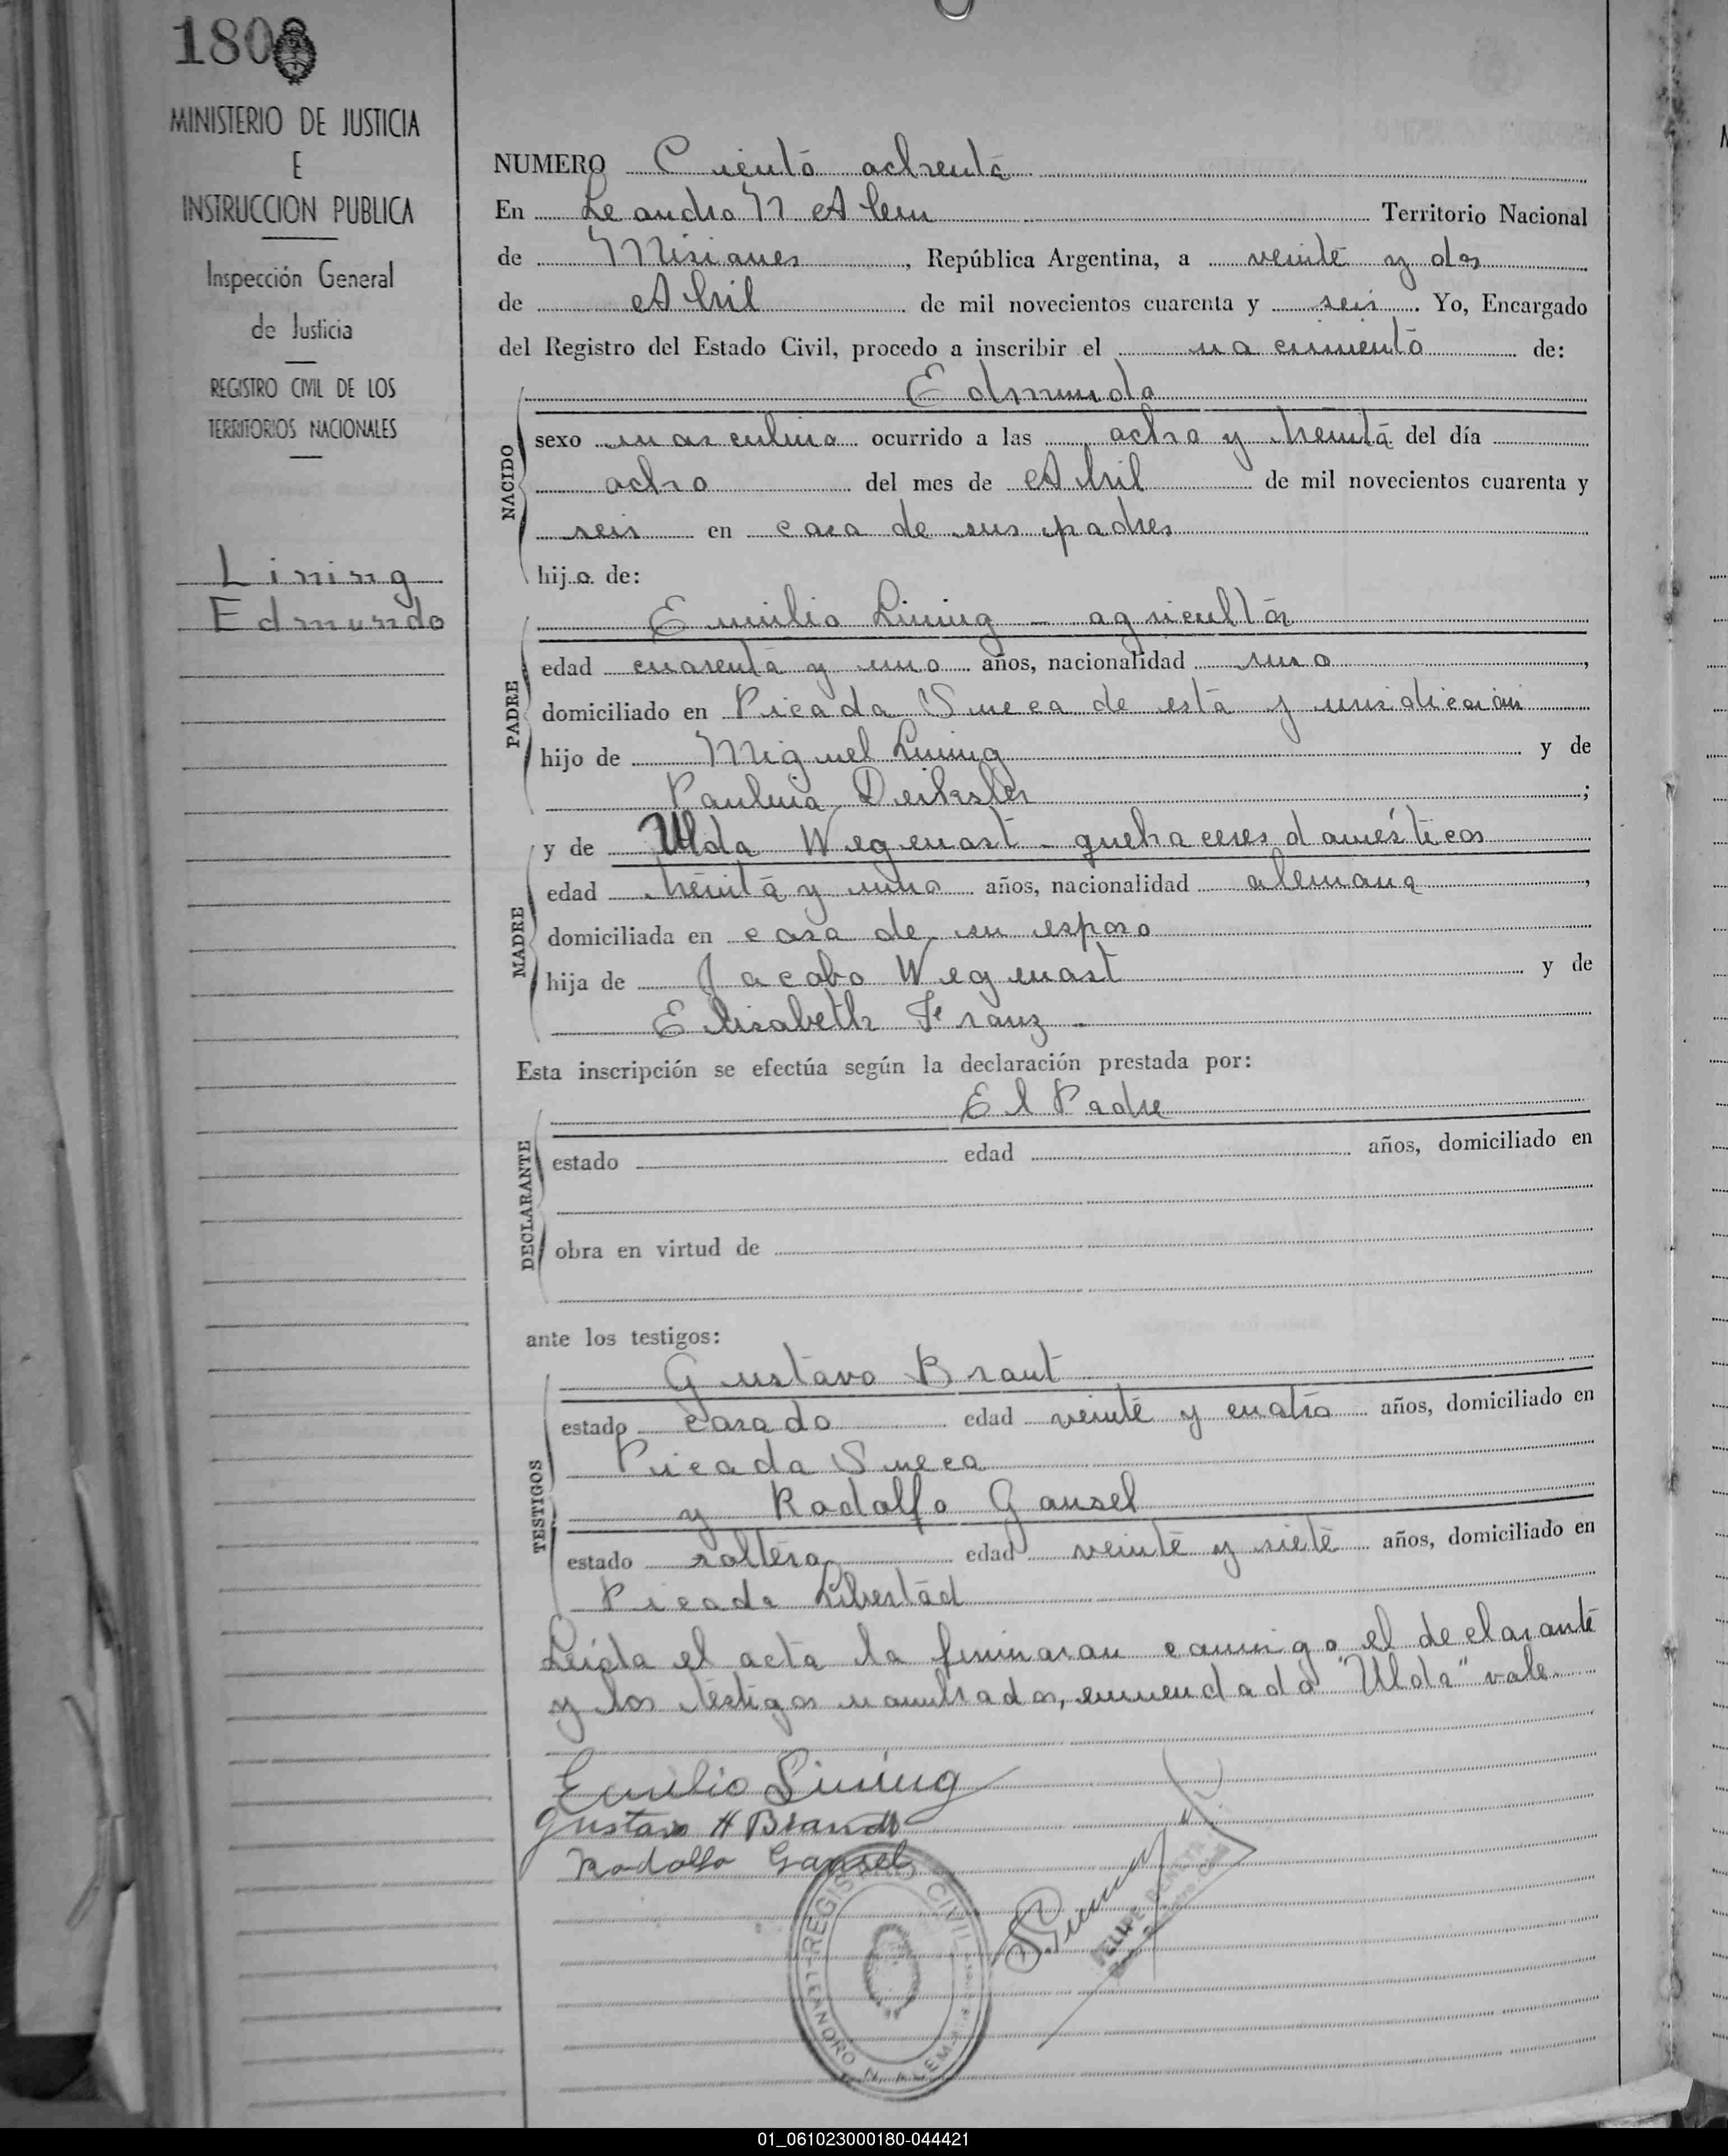 180
MINISTERIO DE JUSTICIA
E
INSTRUCCION PUBLICA
Inspección General
de Justicia
REGISTRO CIVIL DE LOS
TERRITORIOS NACIONALES
Lining
Edmundo
NUMERO Ciento ochenta
En Leandro N Alem Territorio Nacional
de Misiones, República Argentina, a veinte y dos
de Abril de mil novecientos cuarenta y seis. Yo, Encargado
del Registro del Estado Civil, procedo a inscribir el nacimiento de:
NACIDO
Edmundo
sexo masculino ocurrido a las ocho y treinta del día
ocho del mes de Abril de mil novecientos cuarenta y
seis en casa de sus padres
hijo de:
PADRE
Emilio Lining - agricultor
edad cuarenta y uno años, nacionalidad ruso,
domiciliado en Picada Sueca de esta jurisdicción
hijo de Miguel Lining y de
Paulina ;
MADRE
y de Ulda Wegenast - quehaceres domésticos
edad treinta y uno años, nacionalidad alemana,
domiciliada en casa de su esposo
hija de Jacobo Wegenast y de
Elisabeth Franz -
Esta inscripción se efectúa según la declaración prestada por:
DECLARANTE
El Padre
estado edad años, domiciliado en
obra en virtud de
ante los testigos:
TESTIGOS
Gustavo Brant
estado casado edad veinte y cuatro años, domiciliado en
Picada Sueca
y Rodolfo Gansel
estado soltero edad veinte y siete años, domiciliado en
Picada Libertad
Leída el acta la firmaron conmigo el declarante
y los testigos nombrados, enmendado "Ulda" vale.
Emilio Lining
Gustavo H Brandt
Rodolfo Gansel
REGISTRO CIVIL
LEANDRO N. ALEM
FELIPE
01_061023000180-044421